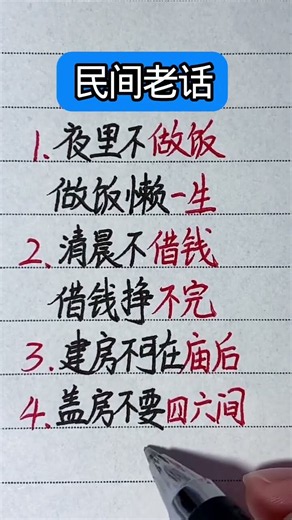 民间老话
1.夜里不做饭
做饭懒一生
2.清晨不借钱
借钱挣不完
3.建房不可在庙后
4.盖房不要四六间